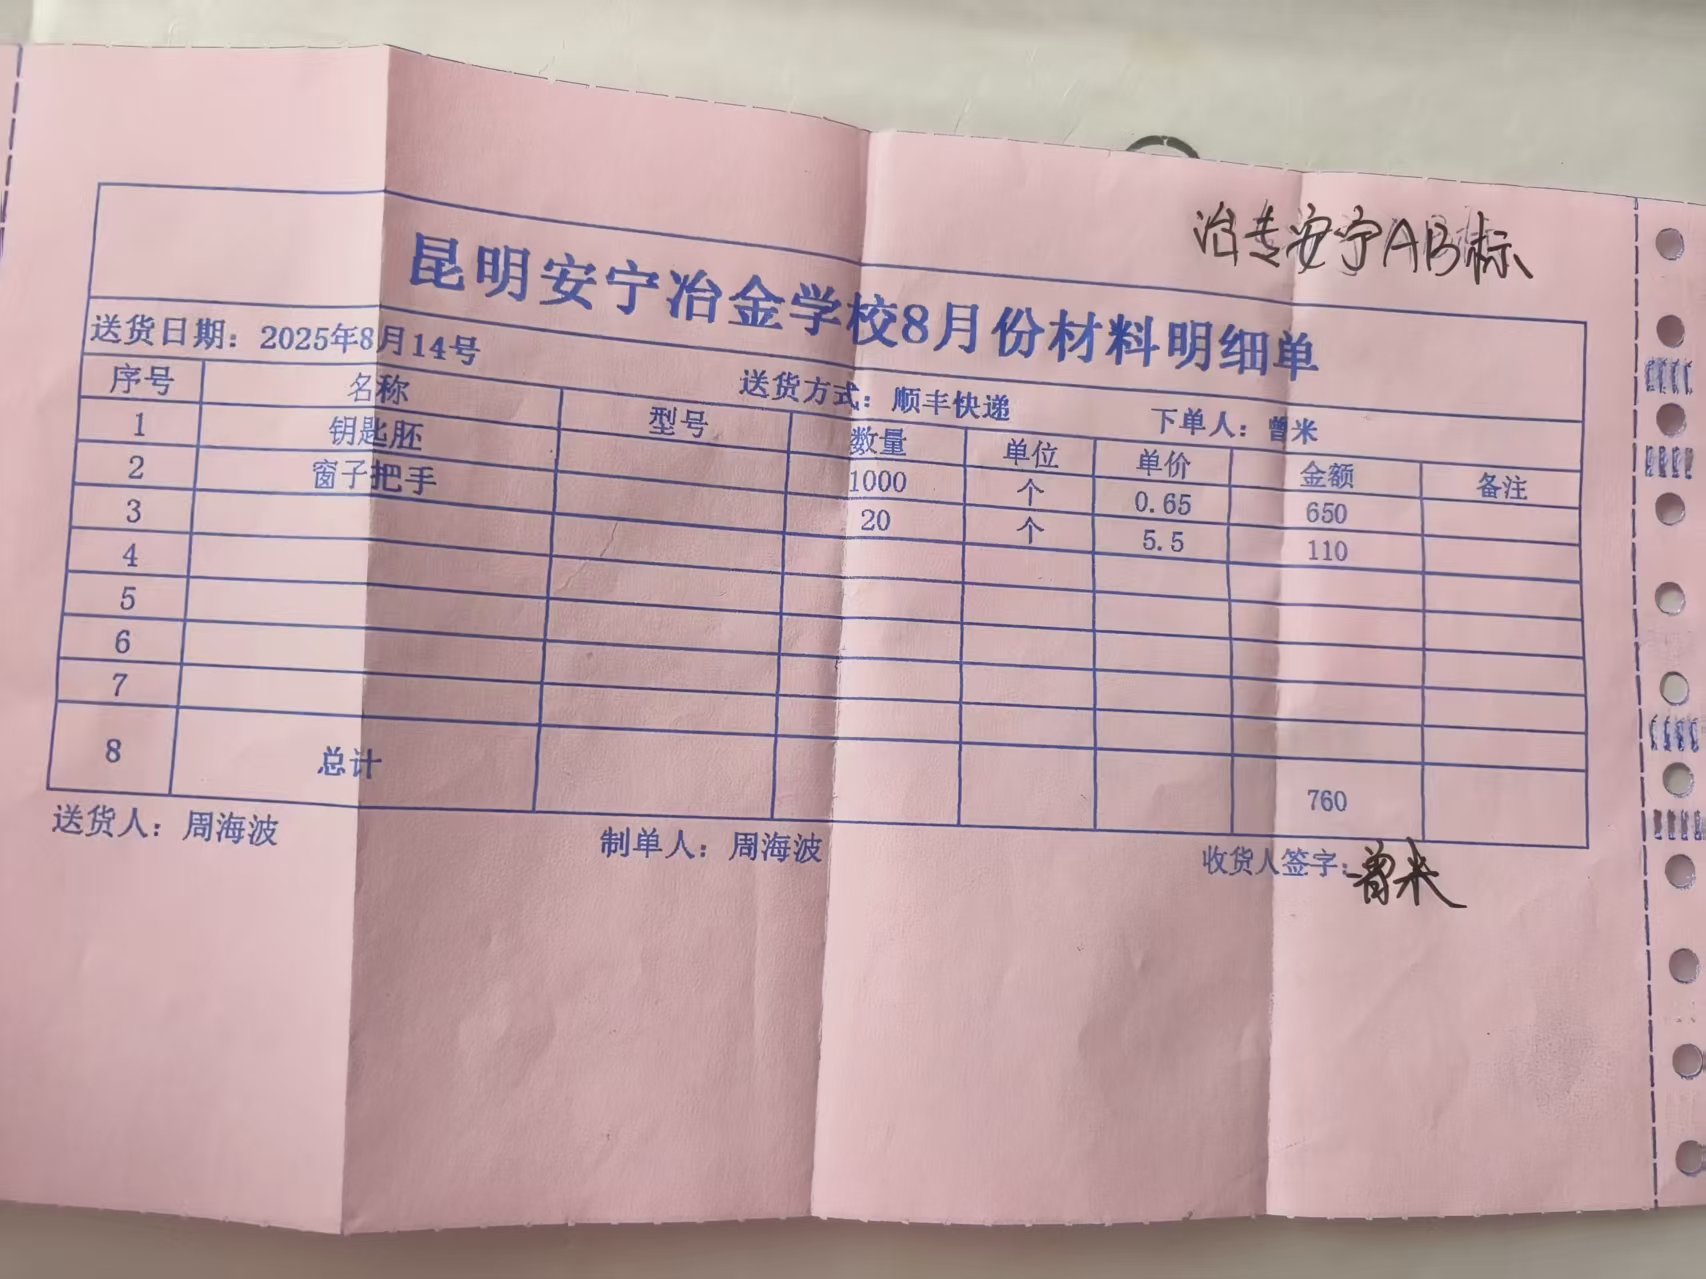 冶专安宁AB标
昆明安宁冶金学校8月份材料明细单
送货日期：2025年8月14号 送货方式：顺丰快递 下单人：曾米
序号 名称 型号 数量 单位 单价 金额 备注
1 钥匙胚 1000 个 0.65 650
2 窗子把手 20 个 5.5 110
3
4
5
6
7
8 总计 760
送货人：周海波 制单人：周海波 收货人签字：曾米